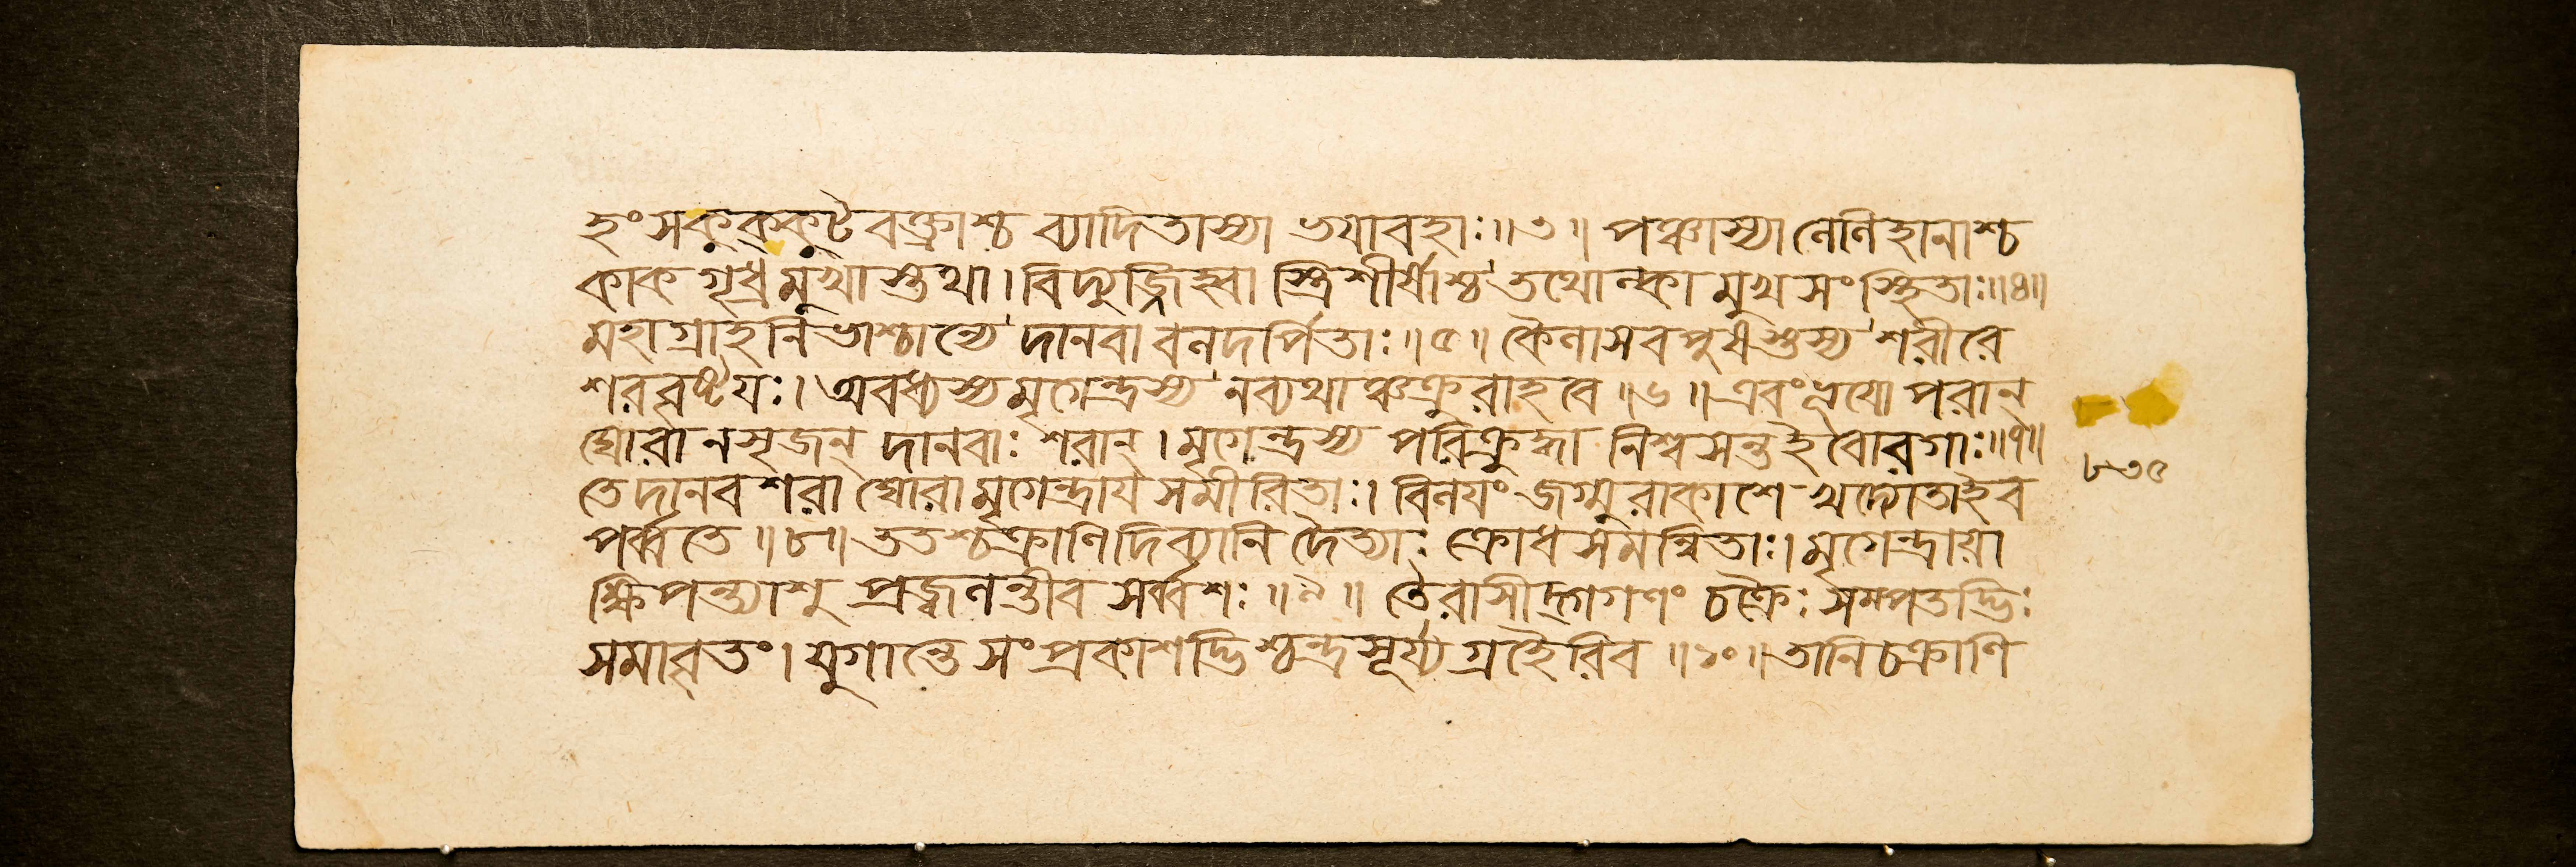 হংসকুক্কুটবক্ত্রাশ্চ ব্যাদিতাস্যা ভয়াবহাঃ॥৩॥ পঞ্চাস্যা লেলিহানাশ্চ
কাক গৃধ্রমুখাস্তথা। বিদ্যুজ্জিহ্বা স্ত্রিশীর্ষাশ্চ তথোল্কামুখসংস্থিতাঃ॥৪॥
মহাগ্রাহনিভাশ্চান্যে দানবা বলদর্পিতাঃ॥৫॥ কৈলাসবপুষস্তস্য শরীরে
শরবৃষ্টয়ঃ। অবধ্যস্য মৃগেন্দ্রস্য নব্যথাঞ্চক্রুরাহবে॥৬॥ এবংভূয়ো পরান্
ঘোরানসৃজন্ দানবাঃ শরান্। মৃগেন্দ্রস্য পরিক্রুদ্ধা নিশ্বসন্তইবোরগাঃ॥৭॥
তে দানবশরা ঘোরা মৃগেন্দ্রায় সমীরিতাঃ। বিলয়ং জগ্মুরাকাশে খদ্যোতাইব
পর্ব্বতে॥৮॥ ততশ্চক্রাণি দিব্যানি দৈত্যাঃ ক্রোধসমন্বিতাঃ। মৃগেন্দ্রায়া
ক্ষিপন্ত্যাশু প্রজ্বলন্তীব সর্ব্বশঃ॥৯॥ তৈরাসীদ্গগণং চক্রৈঃ সম্পতদ্ভিঃ
সমাবৃতং। যুগান্তে সংপ্রকাশদ্ভিশ্চন্দ্রসূর্য্যগ্রহৈরিব॥১০॥ তানি চক্রাণি
৮৩৫